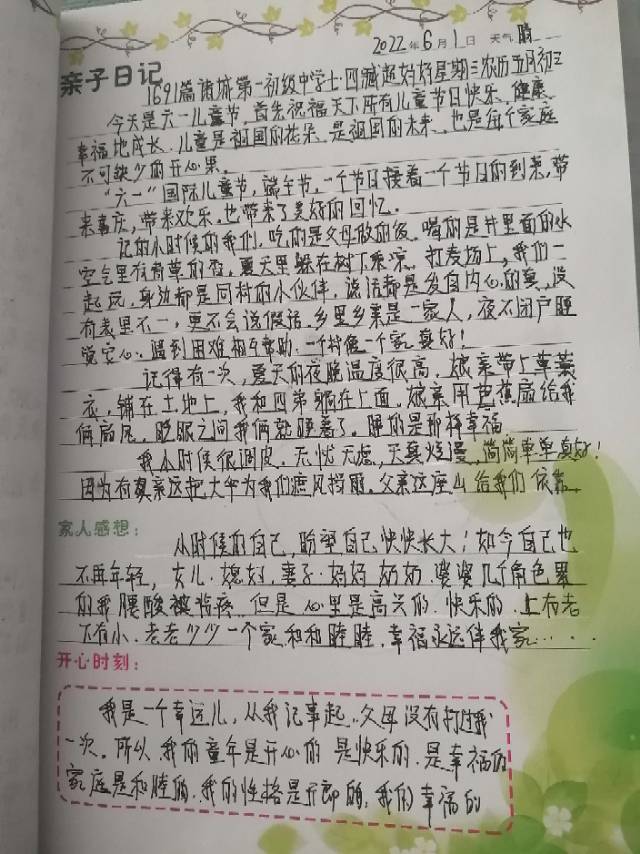 2022年6月1日 天气晴
亲子日记
1691篇诸城第一初级中学七·四臧超妈妈星期三农历五月初三
今天是六一儿童节,首先祝福天下所有儿童节日快乐、健康、
幸福地成长、儿童是祖国的花朵、是祖国的未来、也是每个家庭
不可缺少的开心果。
“六一”国际儿童节,端午节,一个节日接着一个节日的到来,带
来喜庆,带来欢乐,也带来了美好的回忆。
记的小时候的我们,吃的是父母做的饭、喝的是井里面的水
空气里有青草的香,夏天里躲在树下乘凉、打麦场上,我们一
起玩,身边都是同村的小伙伴,说话都是发自内心的真,没
有表里不一,更不会说假话,乡里乡亲是一家人,夜不闭户睡
觉安心、遇到困难相互帮助、一个村像一个家,真好!
记得有一次,夏天的夜晚温度很高、娘亲带上草
衣,铺在土地上,我和四弟躺在上面、娘亲用芭蕉扇给我
俩扇风、眨眼之间我俩就睡着了。睡的是那样幸福
我小时候很调皮、无忧无虑,天真烂漫,简简单单真好!
因为有娘亲这把大伞为我们遮风挡雨。父亲这座山给我们依靠
家人感想:
小时候的自己,盼望自己快快长大;如今自己也
不再年轻,女儿·媳妇·妻子·妈妈·奶奶·婆婆几个角色累
的我腰酸被背疼 但是 心里是高兴的·快乐的·上有老
下有小、老老少少一个家和和睦睦,幸福永远伴我家……
开心时刻:
我是一个幸运儿,从我记事起、父母没有打过我
一次。所以 我的童年是开心的 是快乐的、是幸福的
家庭是和睦的、我的性格是开朗的,我们幸福的